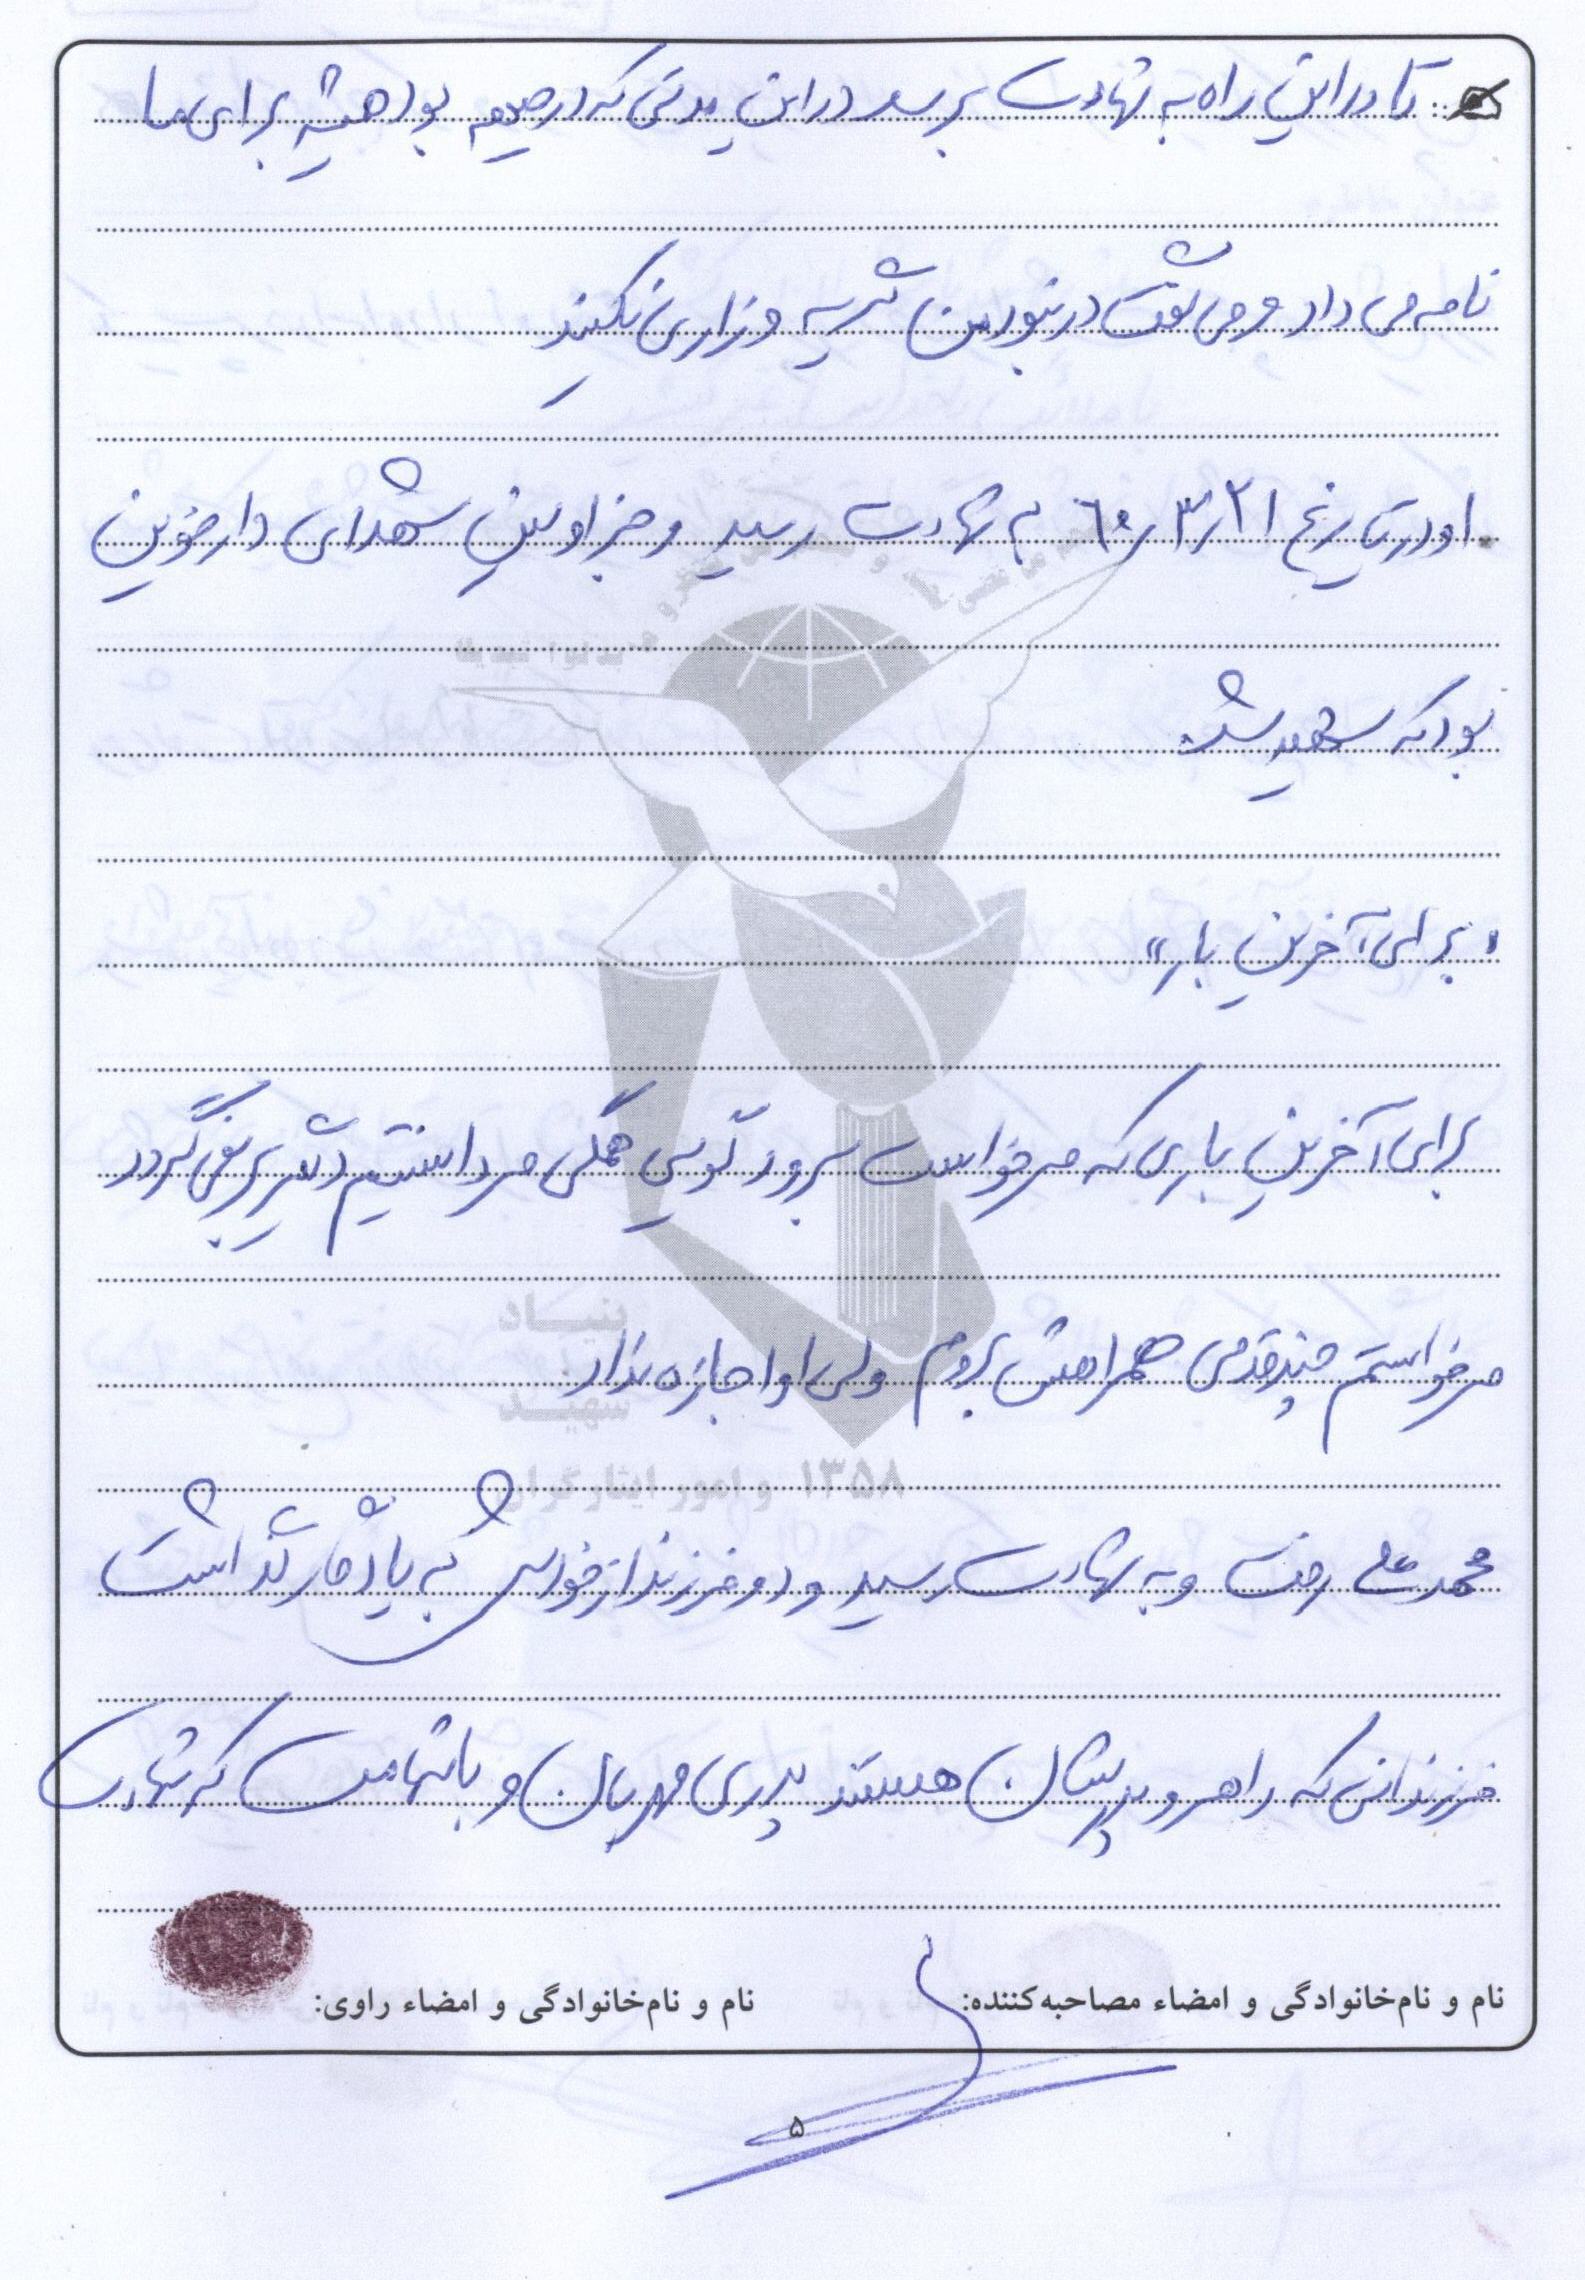 تا در این راه به شهادت برسد در این مدتی که در جبهه بود همیشه برای ما
نامه می داد و می گفت در نبود من گریه و زاری نکنید
او در تاریخ ۶۰٫۳٫۲۱ به شهادت رسید و جز اولین شهدای دارخوین
بود که شهید شد.
«برای آخرین بار»
برای آخرین باری که می خواست برود گویی همگی می دانستیم دیگر بر نمی گردد
می خواستم چند قدمی همراهش بروم ولی او اجازه نداد.
محمد علی رفت و به شهادت رسید و دو فرزند از خودش به یادگار گذاشت
فرزندانی که راهرو پدرشان هستند پدری مهربان و باشهامت که شهادت
بنیاد
شهید
و امور ایثارگران
۱۳۵۸
نام و نام‌خانوادگی و امضاء مصاحبه‌کننده: نام و نام‌خانوادگی و امضاء راوی:
۵